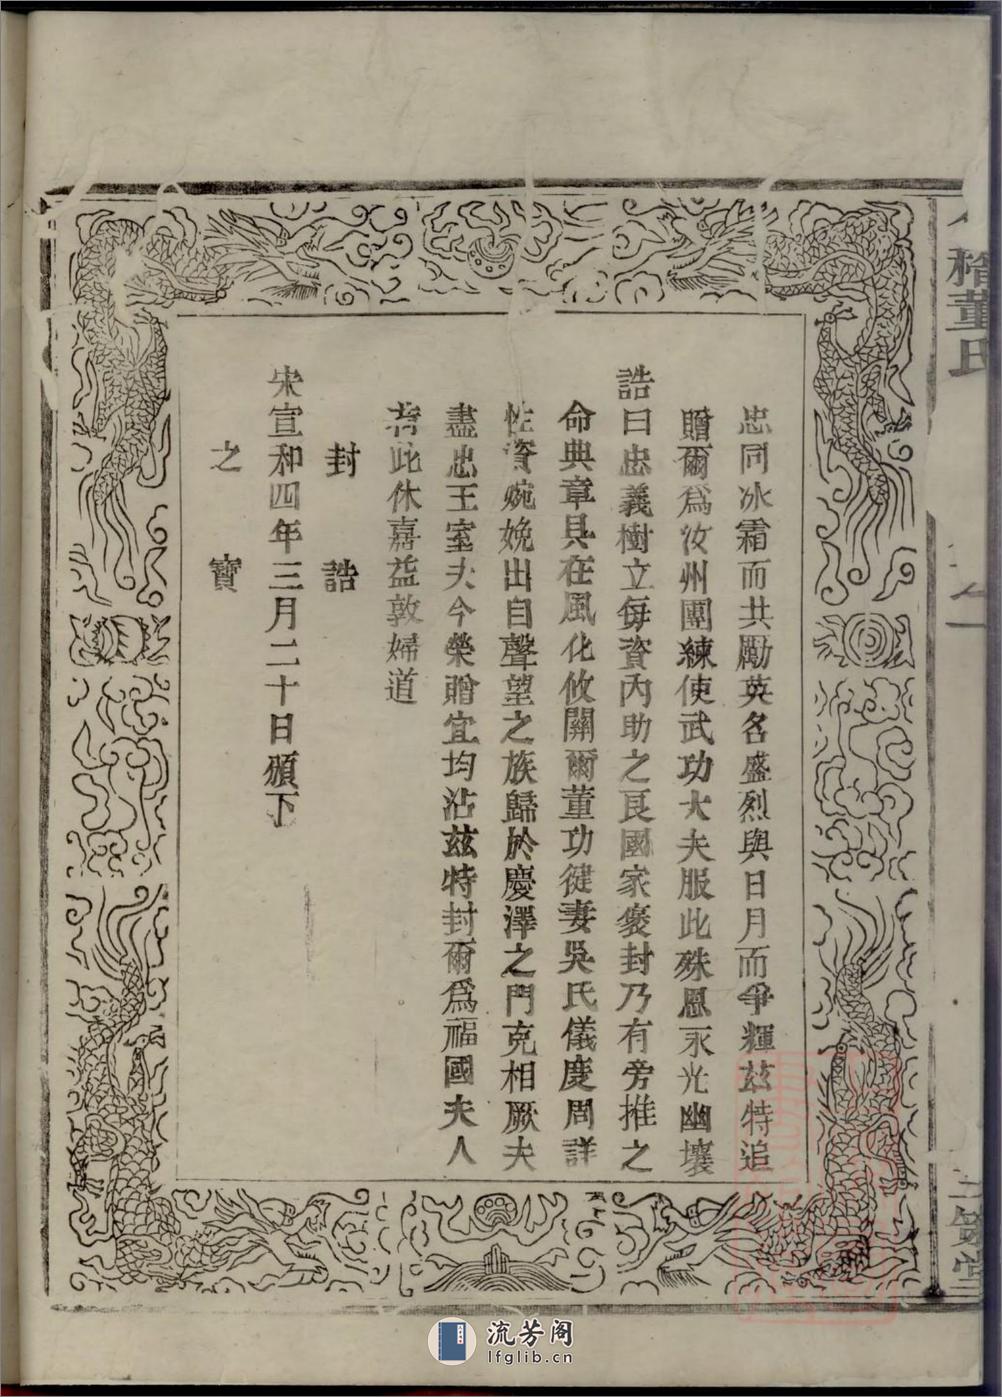 忠同冰霜而共勵英名盛烈與日月而爭輝茲特追
贈爾爲汝州團練使武功大夫服此殊恩永光幽壤
誥曰忠義樹立每資內助之良國家褒封乃有旁推之
命典章具在風化攸關爾董功健妻吳氏儀度周詳
性資婉娩出自聲望之族歸於慶澤之門克相厥夫
盡忠王室夫今榮贈宜均沾茲特封爾爲福國夫人
若此休嘉益敦婦道
封誥
宋宣和四年三月二十日頒下
之寶
稽董氏
三策堂
流芳阁
lfglib.cn